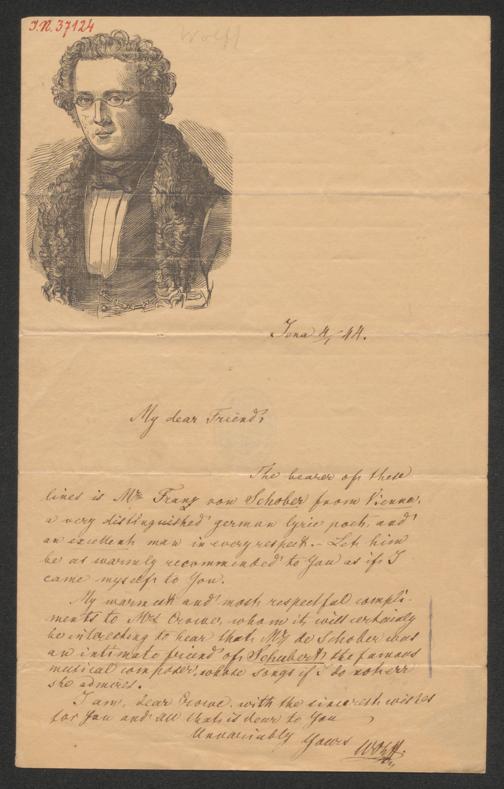 I.N. 37124
Wolff
Jena 4/5 44.
My dear Friend,
The bearer of these
lines is Mr Franz von Schober from Vienna,
a very distinguished german lyric poet, and
an excellent man in every respect. - Let him
be as warmly recommended to You as if I
came myself to You.
My warmest and most respectful compli-
ments to Mrs Crowe, whom it will certainly
be interesting to hear that Mr de Schober was
an intimate friend of Schubert, the famous
musical composer, whose songs if I do not err
she admires.
I am, dear Crowe, with the sincerest wishes
for You and all that is dear to You
Unvariably Yours
Wolff